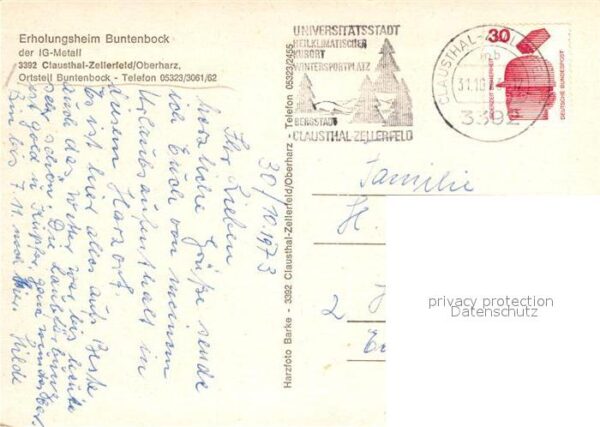 Erholungsheim Buntenbock
der IG-Metall
3392 Clausthal-Zellerfeld/Oberharz,
Ortsteil Buntenbock - Telefon 05323/3061/62
30/10.1973
Ihr Lieben
herzliche Grüße sende
ich Euch von meinem
Urlaubsaufenthalt in
diesem Harzort.
Es ist hier alles aufs Beste
und das Wetter war bis heute
sehr schön. Die Laubbäume
ist gold u. Kupfer, ganz wunderbar.
Bin bis 7.11. noch hier. Hilde
Harzfoto Barke - 3392 Clausthal-Zellerfeld/Oberharz - Telefon 05323/2455
UNIVERSITÄTSSTADT
HEILKLIMATISCHER
KURORT
WINTERSPORTPLATZ
BERGSTADT
CLAUSTHAL-ZELLERFELD
CLAUSTHAL-ZELL
mb
31.10.
3392
30
DEUTSCHE BUNDESPOST
Familie
H.
2
privacy protection
Datenschutz